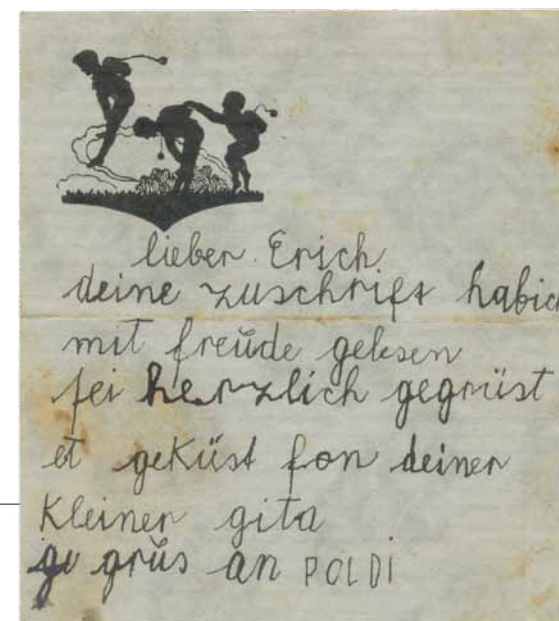 lieber Erich
deine zuschrift habich
mit freude gelesen
sei herzlich gegrüst
et geküst fon deiner
Kleiner gita
grüs an POLDI